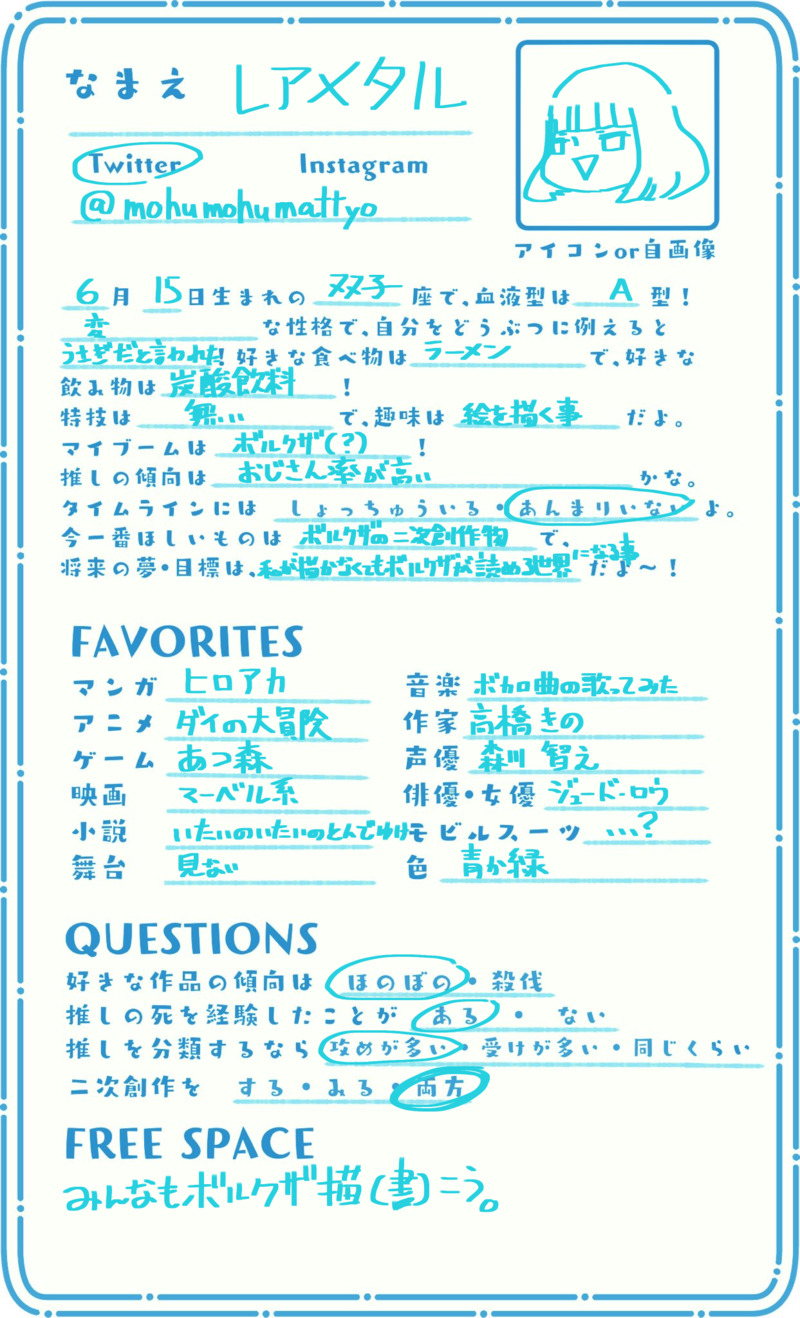 なまえ レアメタル
Twitter Instagram
@mohumohumattyo
アイコンor自画像
6月15日生まれの双子座で、血液型はA型!
変な性格で、自分をどうぶつに例えると
うさぎだと言われた!好きな食べ物はラーメンで、好きな
飲み物は炭酸飲料!
特技は無いで、趣味は絵を描く事だよ。
マイブームはボルクザ(?)!
推しの傾向はおじさん率が高いかな。
タイムラインにはしょっちゅういる・あんまりいないよ。
今一番ほしいものはボルクザの二次創作物で、
将来の夢・目標は、私が描かなくてもボルクザが読める世界になる事だよ〜!
FAVORITES
マンガ ヒロアカ 音楽 ボカロ曲の歌ってみた
アニメ ダイの大冒険 作家 高橋きの
ゲーム あつ森 声優 森川 智之
映画 マーベル系 俳優・女優 ジュード・ロウ
小説 いたいのいたいのとんでゆけ モビルスーツ ...?
舞台 見ない 色 青か緑
QUESTIONS
好きな作品の傾向は ほのぼの・殺伐
推しの死を経験したことが ある・ない
推しを分類するなら 攻めが多い・受けが多い・同じくらい
二次創作を する・みる・両方
FREE SPACE
みんなもボルクザ描(書)こう。